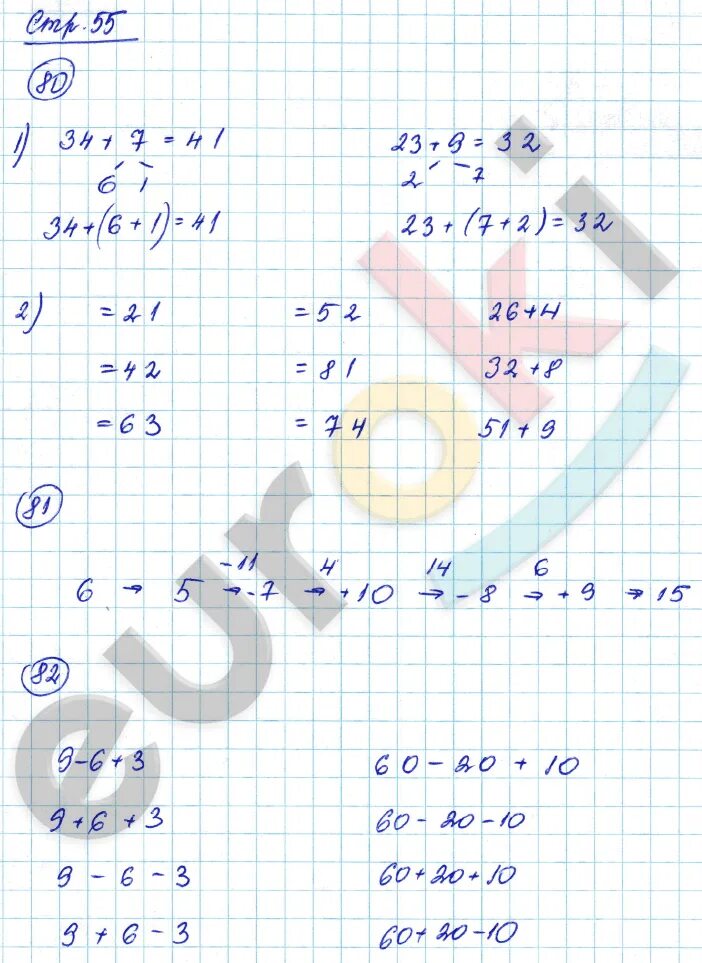 Стр. 55
80
1) 34 + 7 = 41 23 + 9 = 32
6 1 2 7
34 + (6 + 1) = 41 23 + (7 + 2) = 32
2) = 21 = 52 26 + 4
= 42 = 81 32 + 8
= 63 = 74 51 + 9
81
-11 4 14 6
6 → 5 → -7 → +10 → -8 → +9 → 15
82
9 - 6 + 3 60 - 20 + 10
9 + 6 + 3 60 - 20 - 10
9 - 6 - 3 60 + 20 + 10
9 + 6 - 3 60 + 20 - 10
euroki